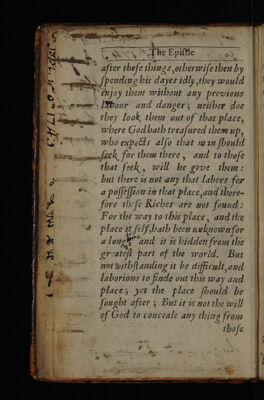 The Epistle
after theſe things, otherwiſe then by
ſpending his dayes idly, they would
enjoy them without any previous
labour and danger; neither doe
they look them out of that place,
where God hath treaſured them up,
who expects alſo that man ſhould
ſeek for them there, and to thoſe
that ſeek, will he give them:
but there is not any that labors for
a poſſeſſion in that place, and there-
fore theſe Riches are not found:
For the way to this place, and the
place it ſelf hath been unknown for
a long and it is hidden from the
greateſt part of the world. But
notwithſtanding it be difficult, and
laborious to finde out this way and
place; yet the place ſhould be
ſought after; But it is not the will
of God to conceale any thing from
thoſe